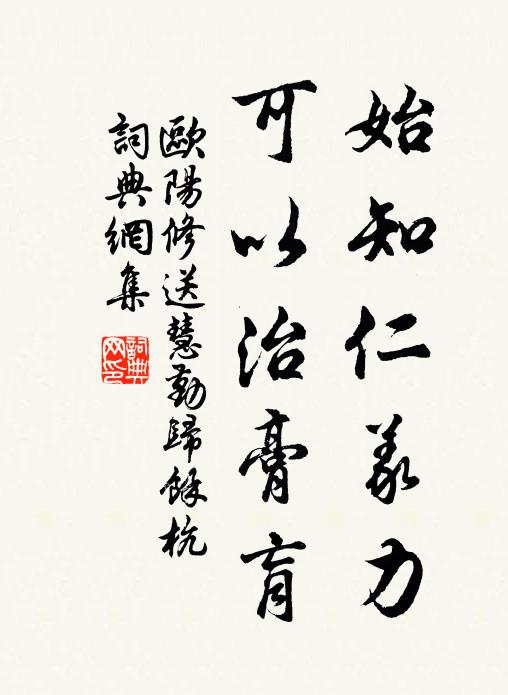 始知仁義力
可以治膏肓
歐陽修送慧勤歸餘杭
詞典網集
詞典
网印